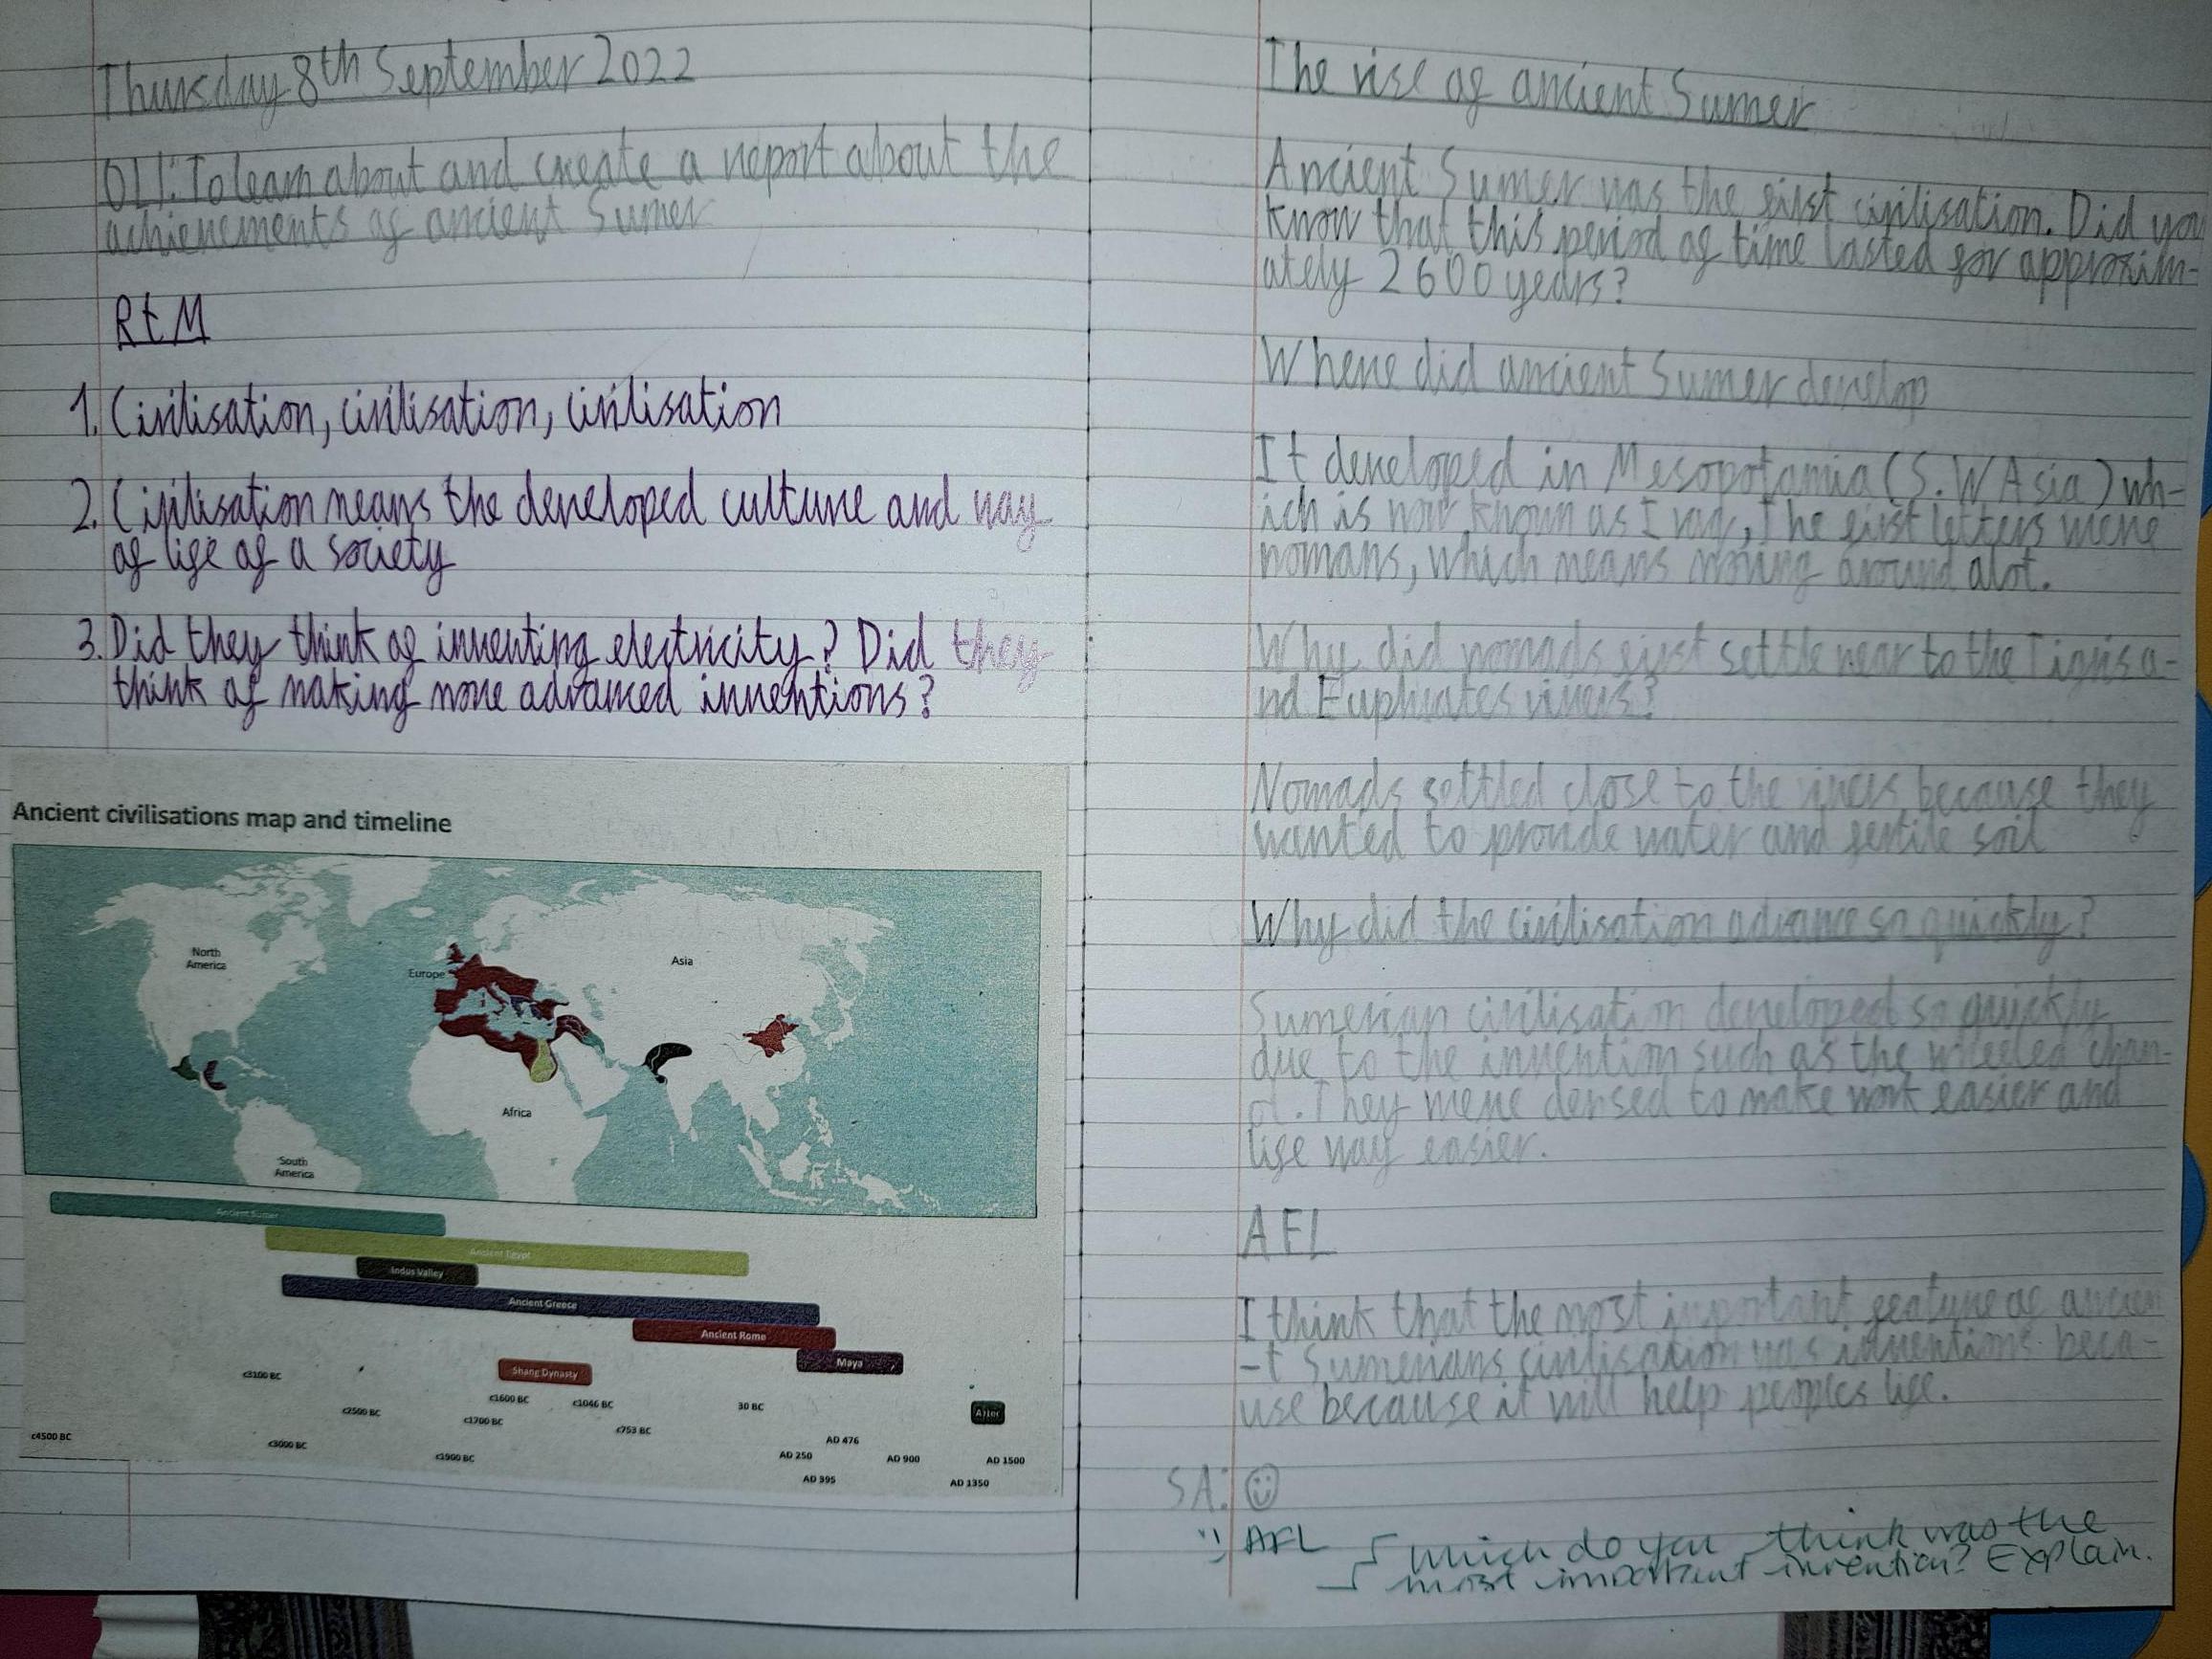 Thursday 8th September 2022
OLI: To learn about and create a report about the
achievements of ancient Sumer
RtM
1. Civilisation, civilisation, civilisation
2. Civilisation means the developed culture and way
of life of a society
3. Did they think of inventing electricity? Did they
think of making more advanced inventions?
Ancient civilisations map and timeline
North
America
Europe
Asia
Africa
South
America
Ancient Sumer
Ancient Egypt
Indus Valley
Ancient Greece
Ancient Rome
Maya
Shang Dynasty
c3100 BC
c1600 BC
c1046 BC
30 BC
Aztec
c2500 BC
c1700 BC
c753 BC
c4500 BC
c3000 BC
AD 476
c1900 BC
AD 250
AD 900
AD 1500
AD 395
AD 1350
The rise of ancient Sumer
Ancient Sumer was the first civilisation. Did you
know that this period of time lasted for approxim-
ately 2600 years?
Where did ancient Sumer develop
It developed in Mesopotamia (S.W Asia) wh-
ich is now known as Iraq, The first letters were
nomans, which means moving around alot.
Why did nomads first settle near to the Tigris a-
nd Euphrates rivers?
Nomads settled close to the rivers because they
wanted to provide water and fertile soil
Why did the civilisation advance so quickly?
Sumerian civilisation developed so quickly
due to the invention such as the wheeled
They were to make work easier and
life way easier.
AFL
I think that the most important feature of ancien
-t Sumerians civilisation was inventions beca-
use because it will help peoples life.
SA: ☺
AFL which do you think was the
most important invention? Explain.